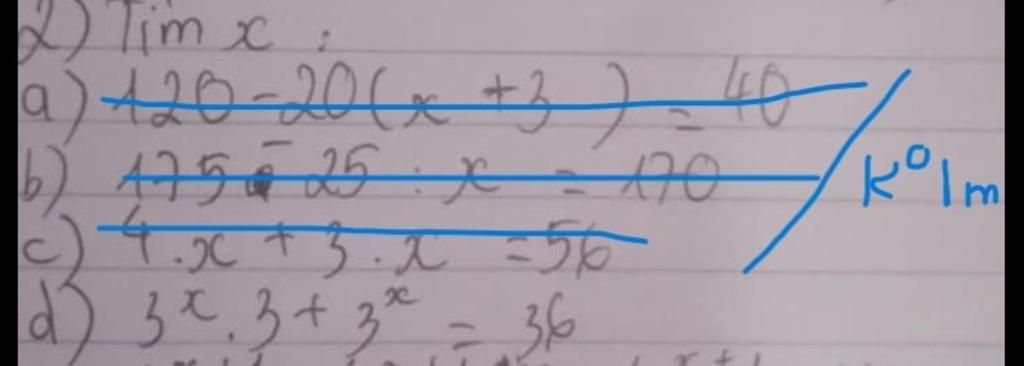 2) Tìm x :
a) 120 - 20(x + 3) = 40
b) 175 - 25 : x = 170
k⁰ lm
c) 4.x + 3.x = 56
d) 3^x . 3 + 3^x = 36